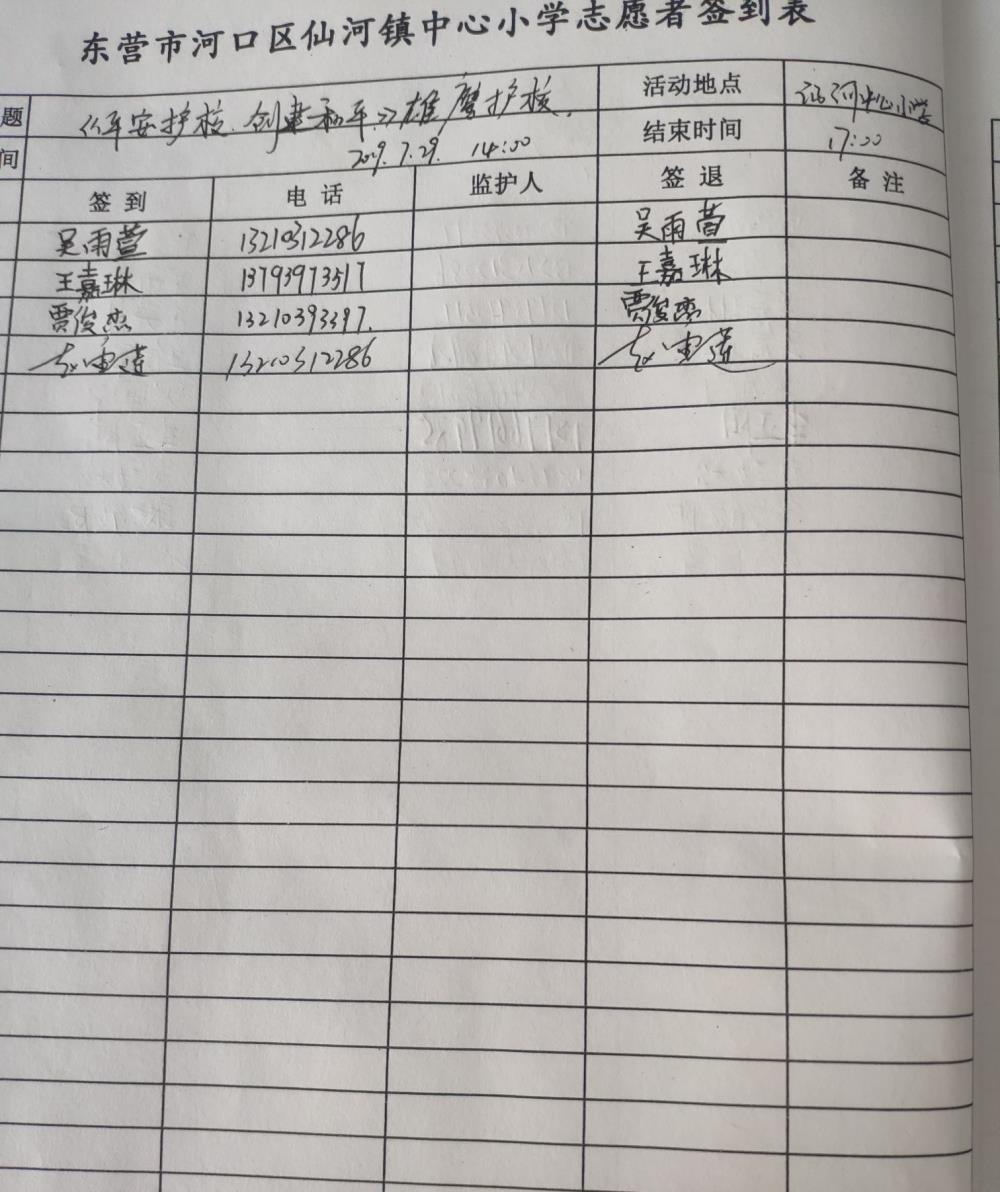 东营市河口区仙河镇中心小学志愿者签到表
题 《平安护校.创建和平》雄鹰护校. 活动地点 仙河中心小学
间 2019.7.29. 14:00 结束时间 17:00
签到 电话 监护人 签退 备注
吴雨萱 13210312286 吴雨萱
王嘉琳 13793973517 王嘉琳
贾俊杰 13210393397. 贾俊杰
13210312286